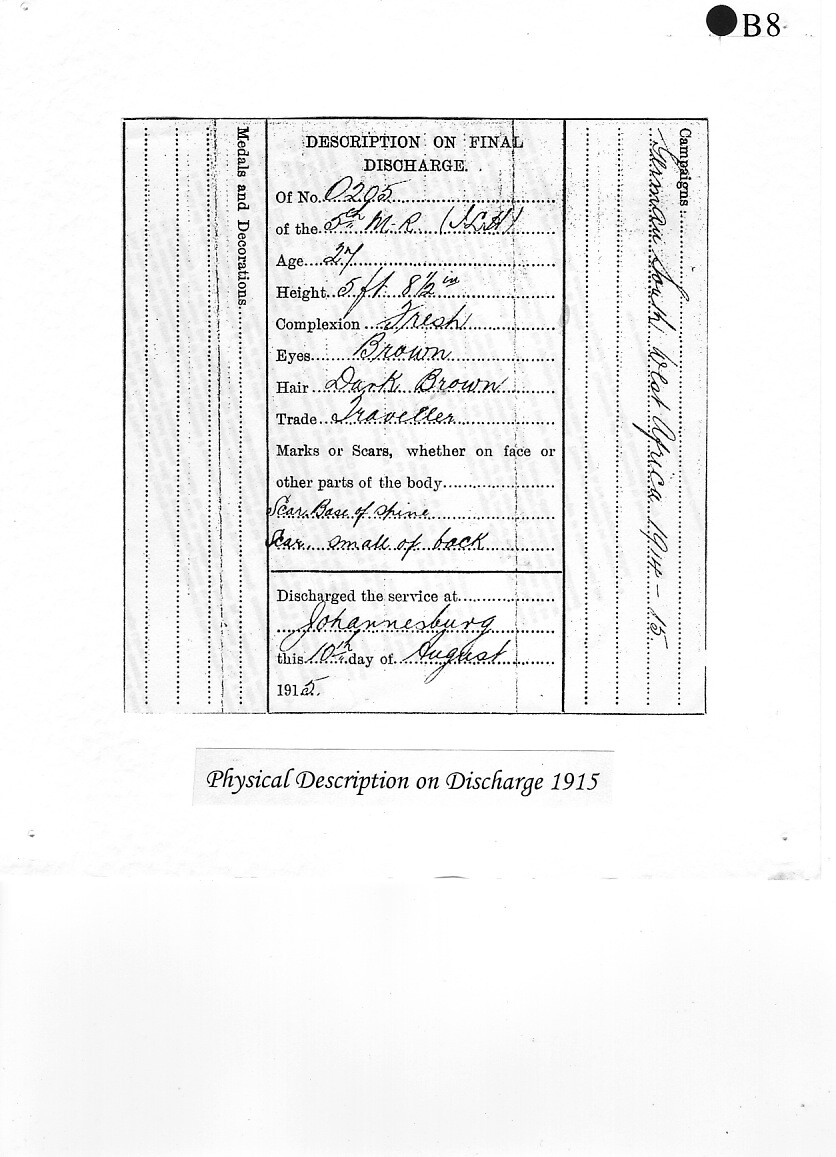 B8
Medals and Decorations.
DESCRIPTION ON FINAL
DISCHARGE.
Of No. 0205
of the 5th M.R. (I.L.H)
Age 27
Height 5 ft 8 1/2 in
Complexion Fresh
Eyes Brown
Hair Dark Brown
Trade Traveller
Marks or Scars, whether on face or
other parts of the body
Scar. Base of spine
Scar. small of back
Discharged the service at
Johannesburg
this 10th day of August
1915.
Campaigns:
German South West Africa 1914-15.
Physical Description on Discharge 1915